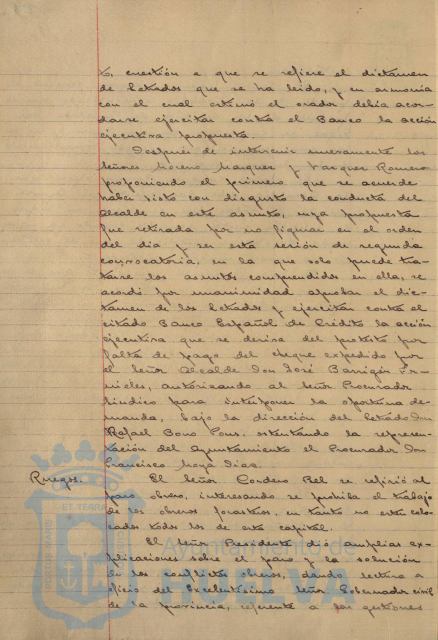 to, cuestión a que se refiere el dictamen
de Letrados que se ha leido, y en armonía
con el cual estimó el orador debia acor-
darse ejercitar contra el Banco la acción
ejecutiva propuesta.
Después de intervenir nuevamente los
señores Moreno Marquez y Vazquez Romero
proponiendo el primero que se acuerde
haber visto con disgusto la conducta del
Alcalde en este asunto, cuya propuesta
fué retirada por no figurar en el orden
del dia y ser esta sesión de segunda
convocatoria, en la que solo puede tra-
tarse los asuntos comprendidos en ella, se
acordó por unanimidad aprobar el dic-
tamen de los Letrados y ejercitar contra el
citado Banco Español de Crédito la acción
ejecutiva que se deriva del protesto por
falta de pago del cheque expedido por
el señor Alcalde Don José Barrigón
autorizando al señor Procurador
Sindico para interponer la oportuna de-
manda, bajo la dirección del Letrado Don
Rafael Bono Pons, ostentando la represen-
tación del Ayuntamiento el Procurador Don
Francisco Moya Dias.
Ruegos. El Señor Cordero Bel se refirió al
paro obrero, interesando se prohiba el trabajo
de los obreros forasteros, en tanto no esten colo-
cados todos los de esta capital.
El señor Presidente dió amplias ex-
plicaciones sobre el paro y la solución
de los conflictos obreros, dando lectura a
oficio del Excelentísimo Señor Gobernador civil
de la provincia, referente a las gestiones
Ayuntamiento de
HUELVA